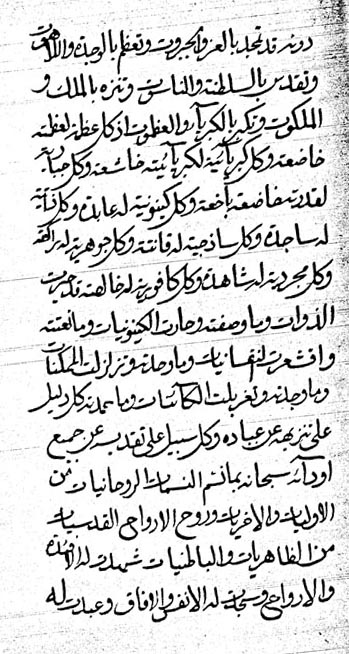 دونه قد تجلد بالعز والجبروت وتعظم بالوحدة واللاهوت
وتقدس بالسلطنة والناسوت وتنزه بالملك و
الملكوت وتكبر بالكبرياء والعظموت اذ كل عظمة لعظمته
خاضعة وكل كبريائية لكبريائيته خاشعة وكل جبارية
لقدرته خاضعة باخعة وكل كينونية له عابدة وكل ذاتية
له ساجدة وكل ساذجية له قانتة وكل جوهرية له
وكل مجردية له شاهدة وكل كافورية له خالصة قد تحيرت
الذوات وما وصفته وحارت الكينونيات وما نعتته
واقشعرت النفسانيات وما وحدته وتزلزلت الممكنات
وما وجدته وتغربلت الكائنات وما حمدته كل دليل
على تنزيهه عن عباده وكل سبيل على تقديسه عن جميع
اودائه سبحانه بما نسم النسمات الروحانيات من
الاوليات والاخريات وروح الارواح القدسيات
من الظاهريات والباطنيات شهدت له الافئدة
والارواح وسجدت له الانفس والافاق وعبدت له